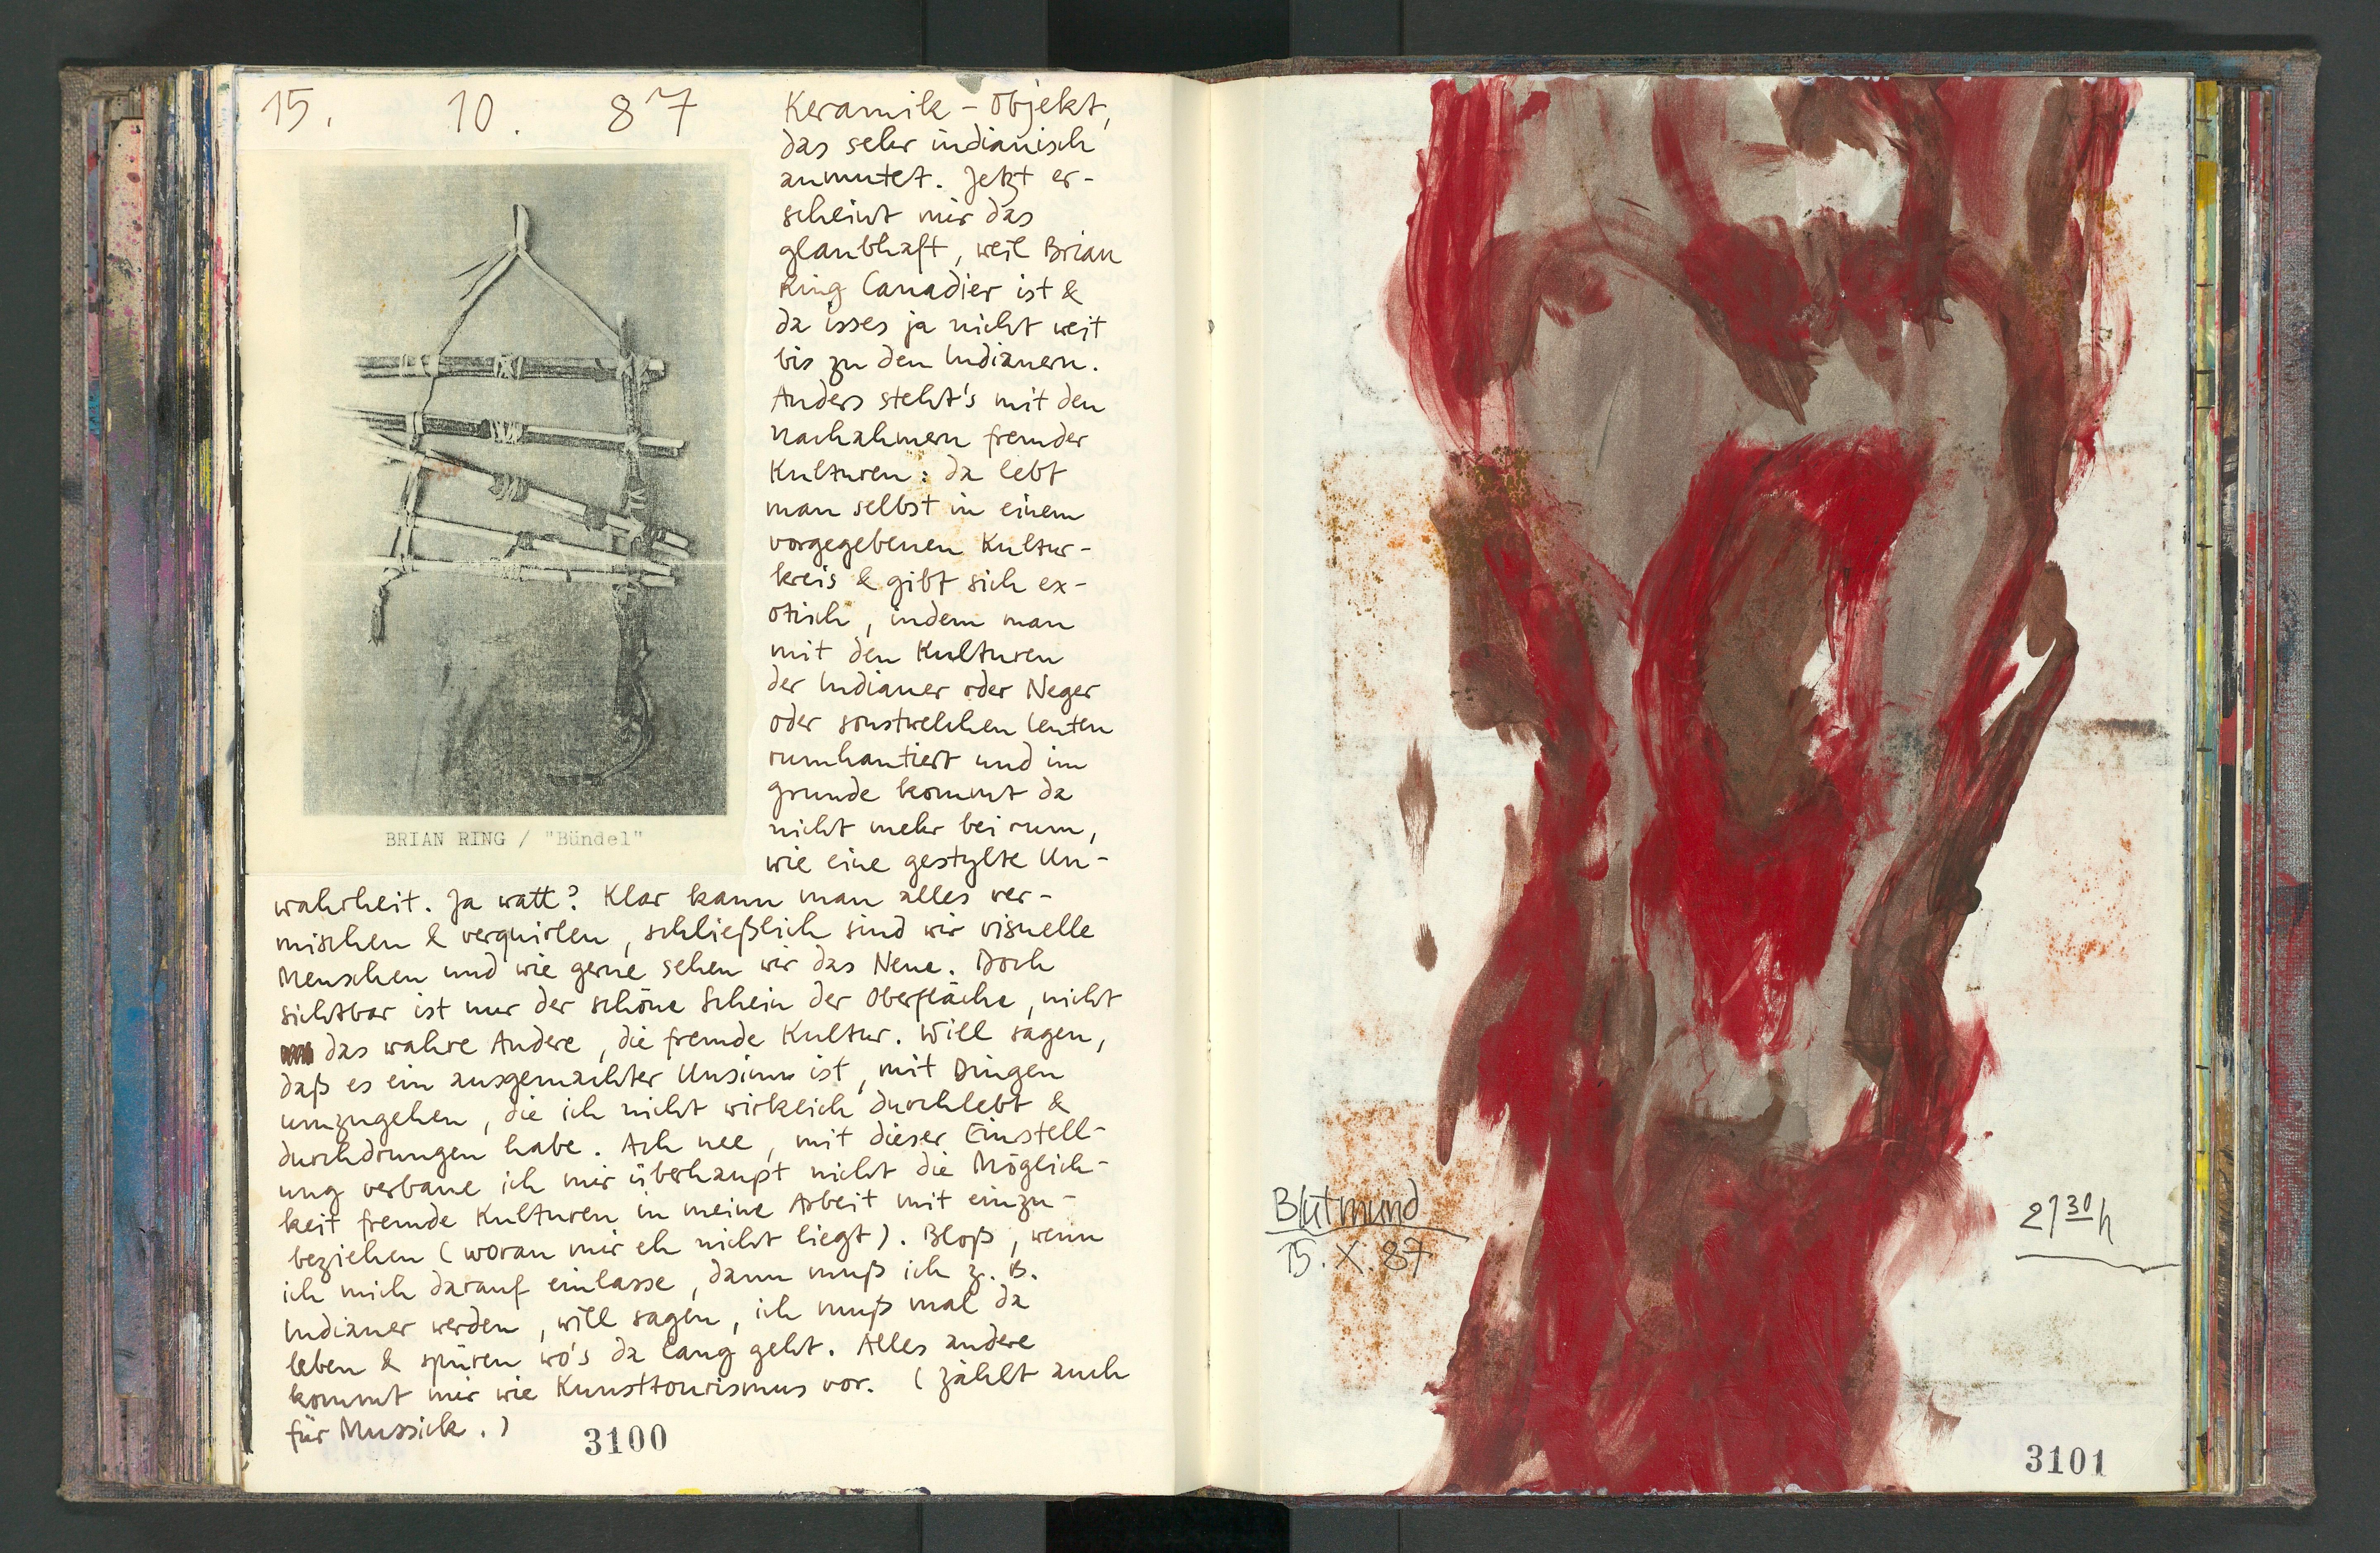 15. 10. 87
Keramik - Objekt,
das sehr indianisch
anmutet. Jetzt er-
scheint mir das
glaubhaft, weil Brian
Ring Canadier ist &
da isses ja nicht weit
bis zu den Indianern.
Anders steht's mit den
Nachahmern fremder
Kulturen: da lebt
man selbst in einem
vorgegebenen Kultur-
kreis & gibt sich ex-
otisch, indem man
mit den Kulturen
der Indianer oder Neger
oder sonstwelchen Leuten
rumhantiert und im
Grunde kommt da
nicht mehr bei rum,
wie eine gestylte Un-
BRIAN RING / "Bündel"
wahrheit. Ja watt? Klar kann man alles ver-
mischen & verquirlen, schließlich sind wir visuelle
Menschen und wie gerne sehen wir das Neue. Doch
sichtbar ist nur der schöne Schein der Oberfläche, nicht
das wahre Andere, die fremde Kultur. Will sagen,
daß es ein ausgemachter Unsinn ist, mit Dingen
umzugehen, die ich nicht wirklich durchlebt &
durchdrungen habe. Ach nee, mit dieser Einstell-
ung verbaue ich mir überhaupt nicht die Möglich-
keit fremde Kulturen in meine Arbeit mit einzu-
beziehen (woran mir eh nicht liegt). Bloß, wenn
ich mich darauf einlasse, dann muß ich z. B.
Indianer werden, will sagen, ich muß mal da
leben & spüren wo's da lang geht. Alles andere
kommt mir wie Kunsttourismus vor. (zählt auch
für Mussick.)
3100
Blutmund
15. X. 87
21 30 h
3101